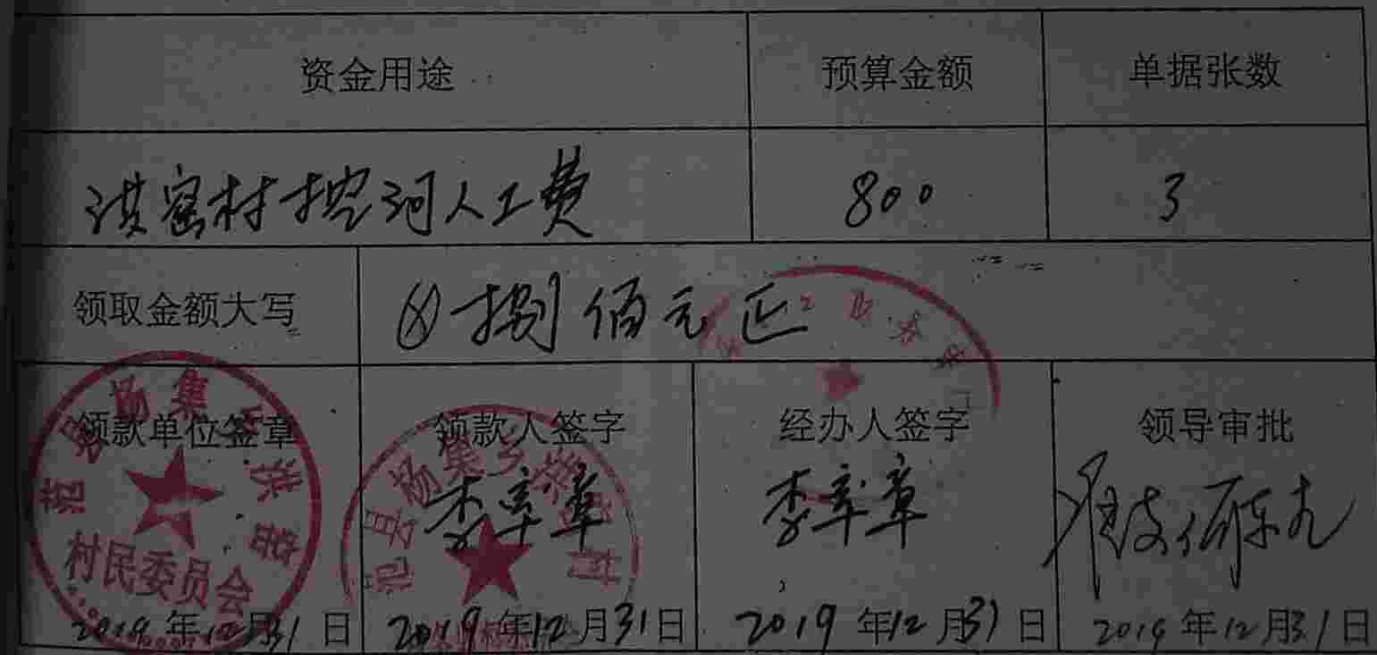 资金用途 预算金额 单据张数
洪窑村挖河人工费 800 3
领取金额大写 ⊗捌佰元正
领款单位签章 领款人签字 经办人签字 领导审批
李章章 李章章
范县杨集乡洪窑
村民委员会
范县杨集乡洪窑村
2019年12月31日 2019年12月31日 2019年12月31日 2019年12月31日